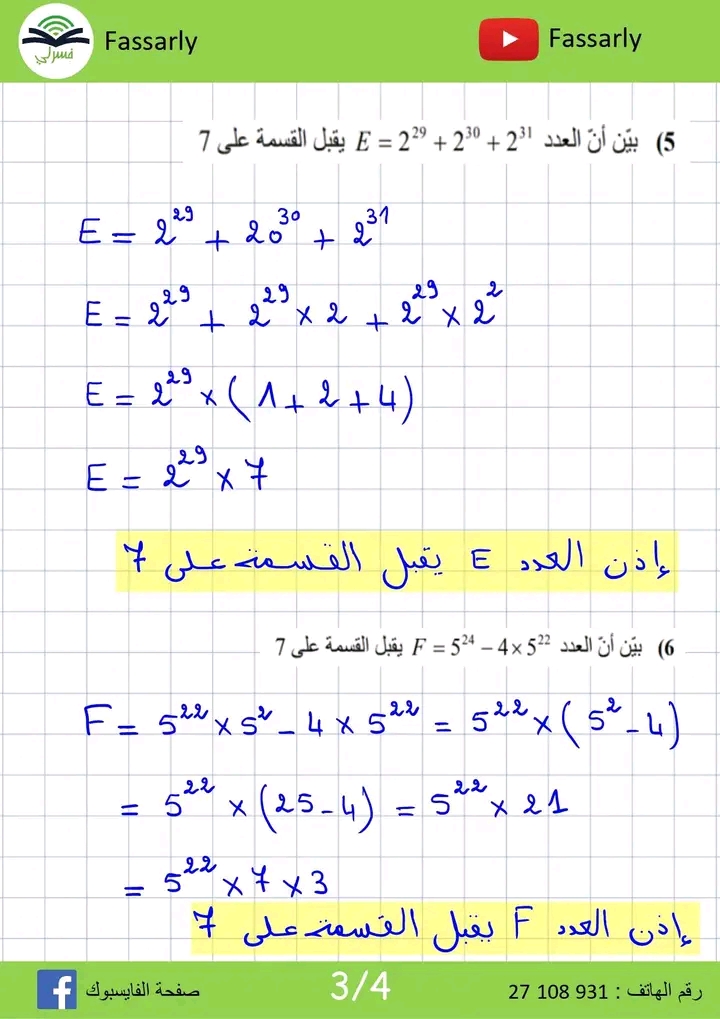 فسرلي
Fassarly
Fassarly
5) بيّن أنّ العدد E = 2²⁹ + 2³⁰ + 2³¹ يقبل القسمة على 7
E = 2²⁹ + 20³⁰ + 2³¹
E = 2²⁹ + 2²⁹ × 2 + 2²⁹ × 2²
E = 2²⁹ × (1 + 2 + 4)
E = 2²⁹ × 7
إذن العدد E يقبل القسمة على 7
6) بيّن أنّ العدد F = 5²⁴ – 4 × 5²² يقبل القسمة على 7
F = 5²² × 5² – 4 × 5²² = 5²² × (5² – 4)
= 5²² × (25 – 4) = 5²² × 21
= 5²² × 7 × 3
إذن العدد F يقبل القسمة على 7
صفحة الفايسبوك
3/4
رقم الهاتف : 27 108 931